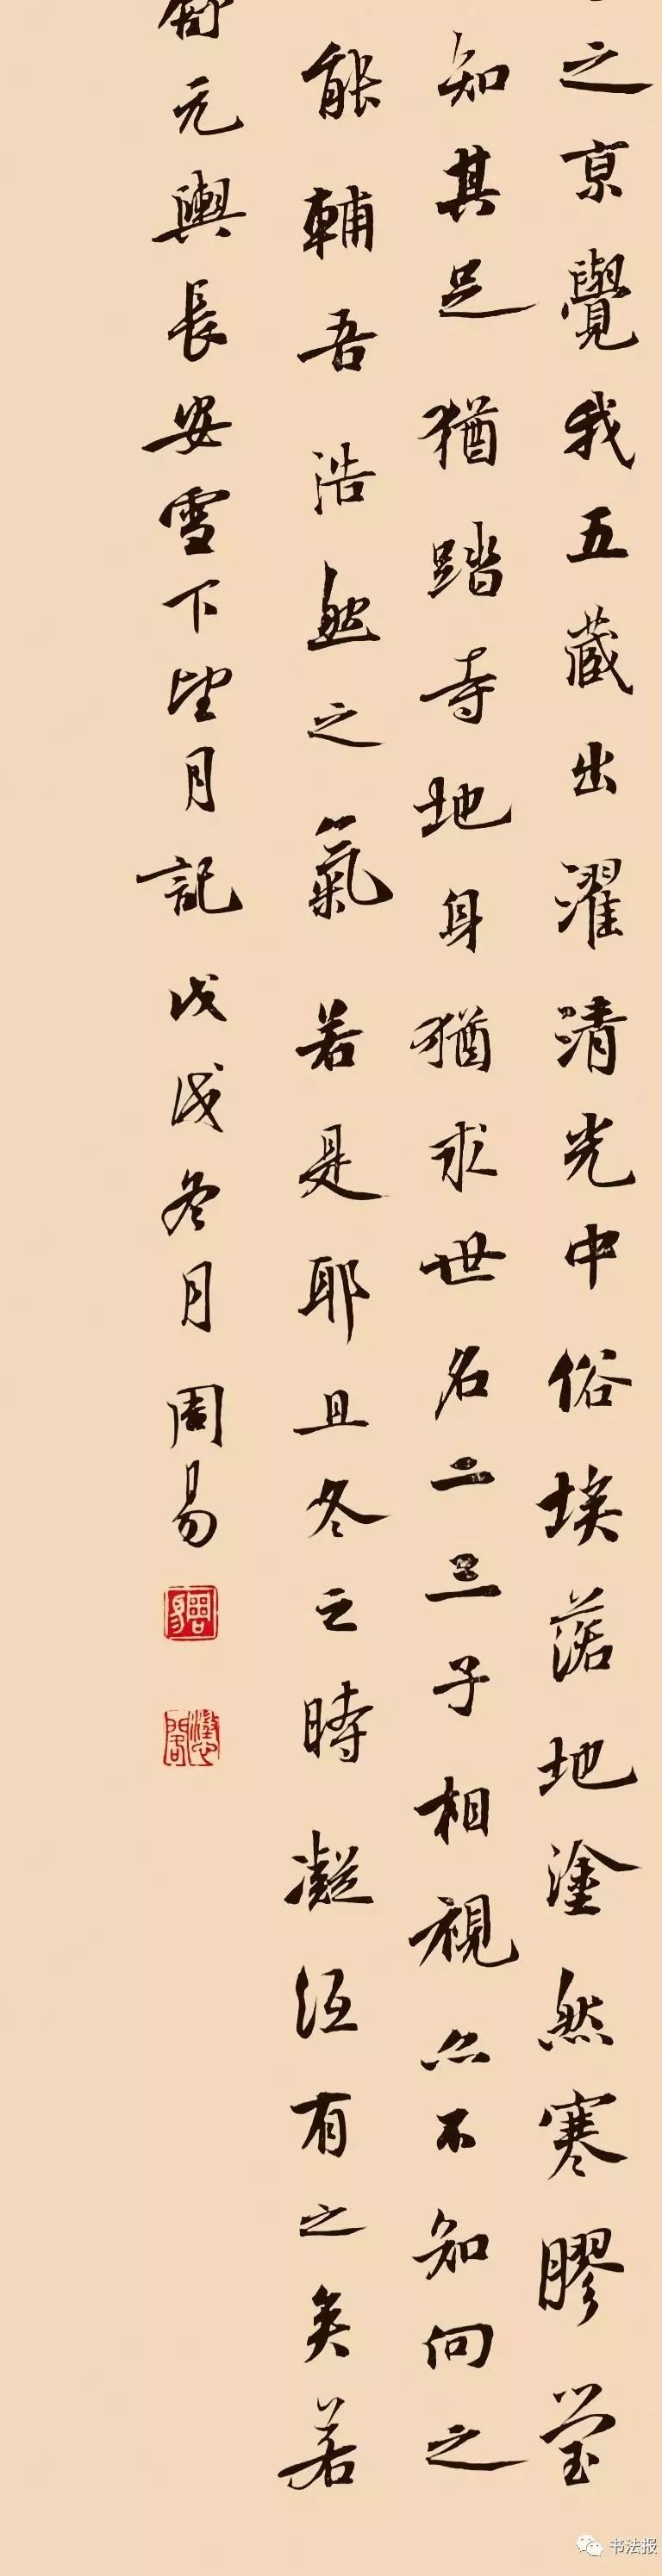 之京覺我五藏出濯清光中俗埃落地塗然寒膠瑩
知其足猶踏寺地身猶求世名二三子相視亦不知向之
能輔吾浩然之氣若是耶且冬之時凝沍有之矣若
元輿長安雪下望月記戊戌冬月周易
书法报